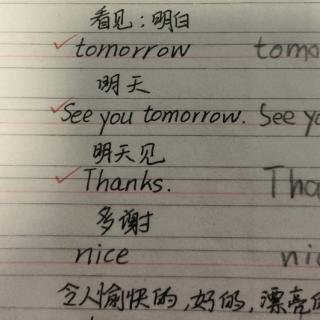 看见；明白
tomorrow tomo
明天
See you tomorrow. See yo
明天见
Thanks. Tha
多谢
nice ni
令人愉快的,好的,漂亮的